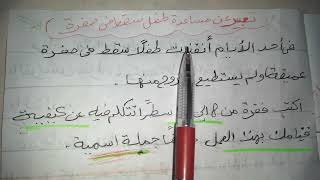 تعبير عن مساعدة طفل سقط من حفرة
فى أحد الأيام أنقذت طفلًا سقط فى حفرة
عميقة ولم يستطيع منها.
أكتب فقرة من 8 إلى سطرًا تتكلم فيه عن كيفية
قيامك بهذا العمل. جملة اسمية.